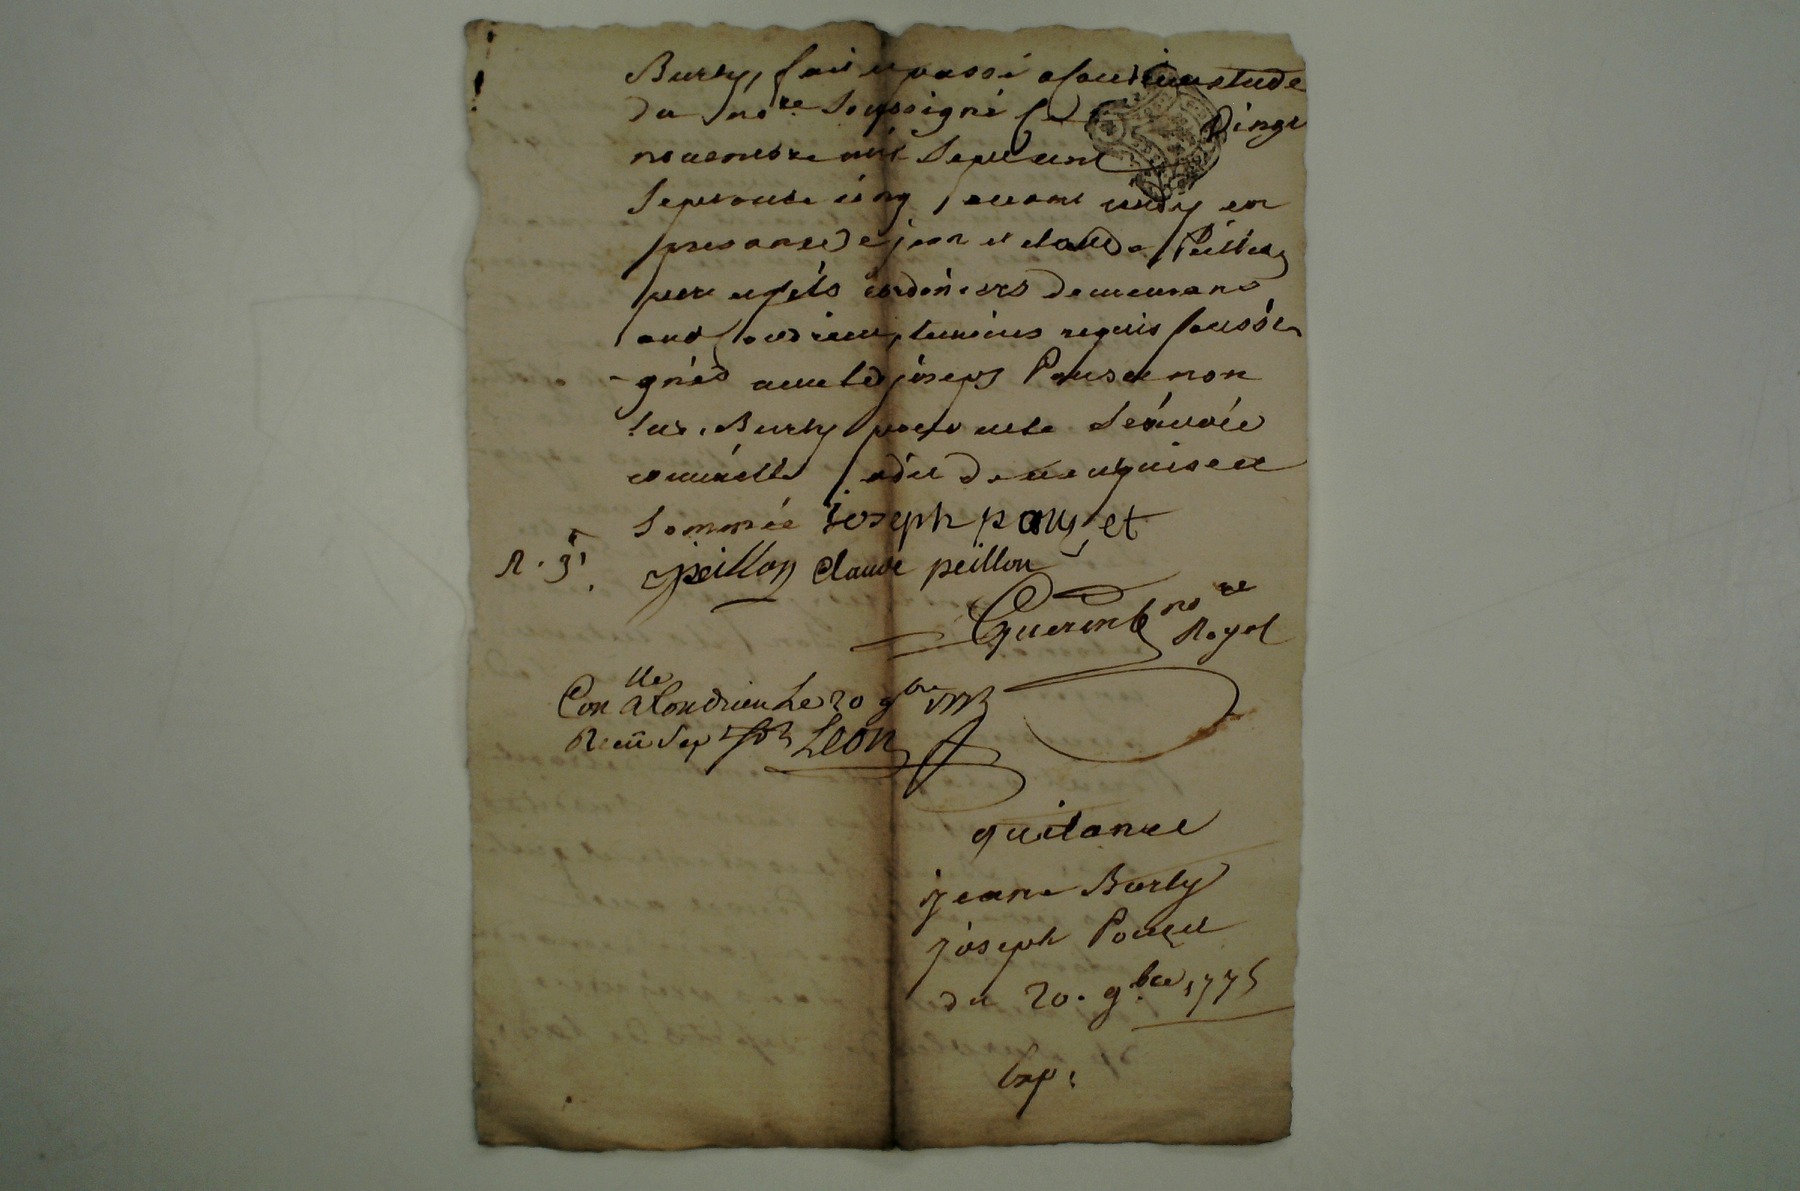 Burly, fait et passé a Condrieu etude
du no.re soussigné le vingt
novembre mil sept cent
septante cinq avant midy en
presance de jean et claude Peillon
pere et fils cordoniers demeurant
aud Condrieu, temoins requis soussi
-gnés avec led joseph Pouset non
lad. Burly pour ne le scavoir
enquise et
sommée joseph pouset
R. 3s. jpeillon claude peillon
Guerin no re Royal
Con lle a Condrieu le 20 9bre 1775
Receu sept Leon
quitance
jeane Burly
joseph Pouzet
du 20. 9.bre 1775
Exp: